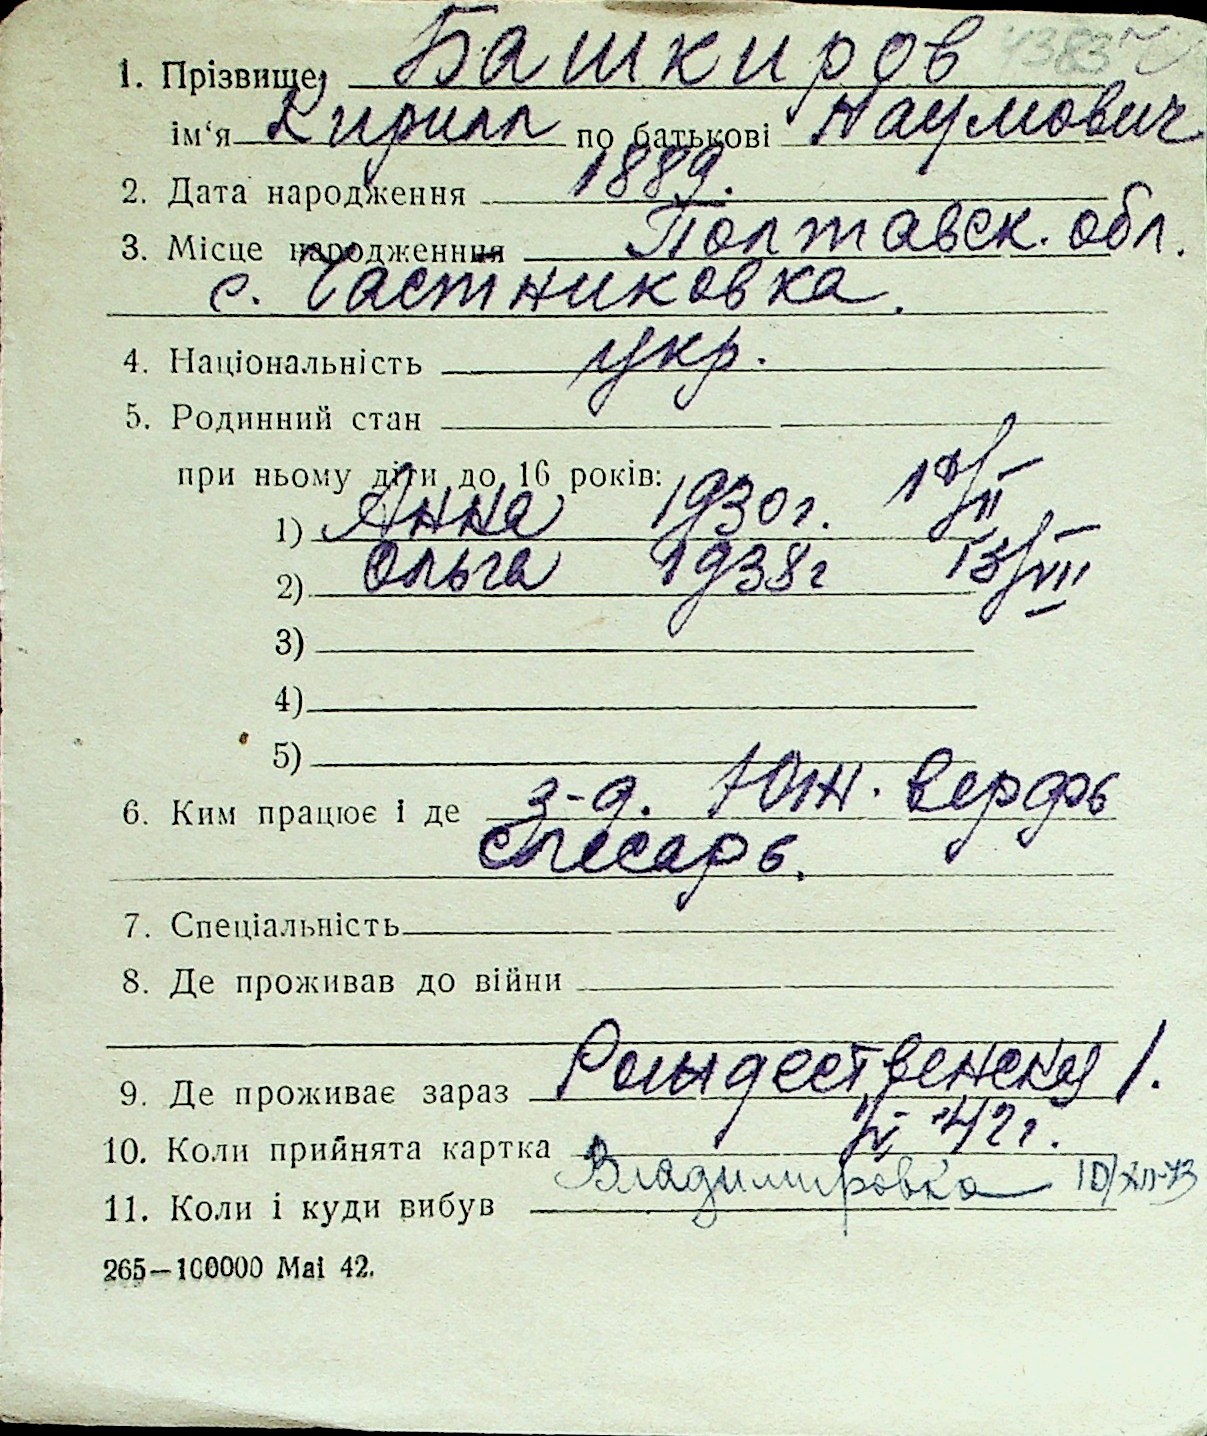 1. Прізвище, Башкиров
ім'я Кирилл по батькові Наумович
2. Дата народження 1889.
3. Місце народженння Полтавск. обл.
с. Частниковка.
4. Національність укр.
5. Родинний стан
при ньому діти до 16 років:
1) Анна 1930 г.
2) Ольга 1938 г 13/VII
3)
4)
5)
6. Ким працює і де з-д. Юж. верфь
слесарь.
7. Спеціальність
8. Де проживав до війни
9. Де проживає зараз Рождественская 1.
10. Коли прийнята картка 42 г.
11. Коли і куди вибув Владимировка 10/XII-43
265—100000 Mai 42.